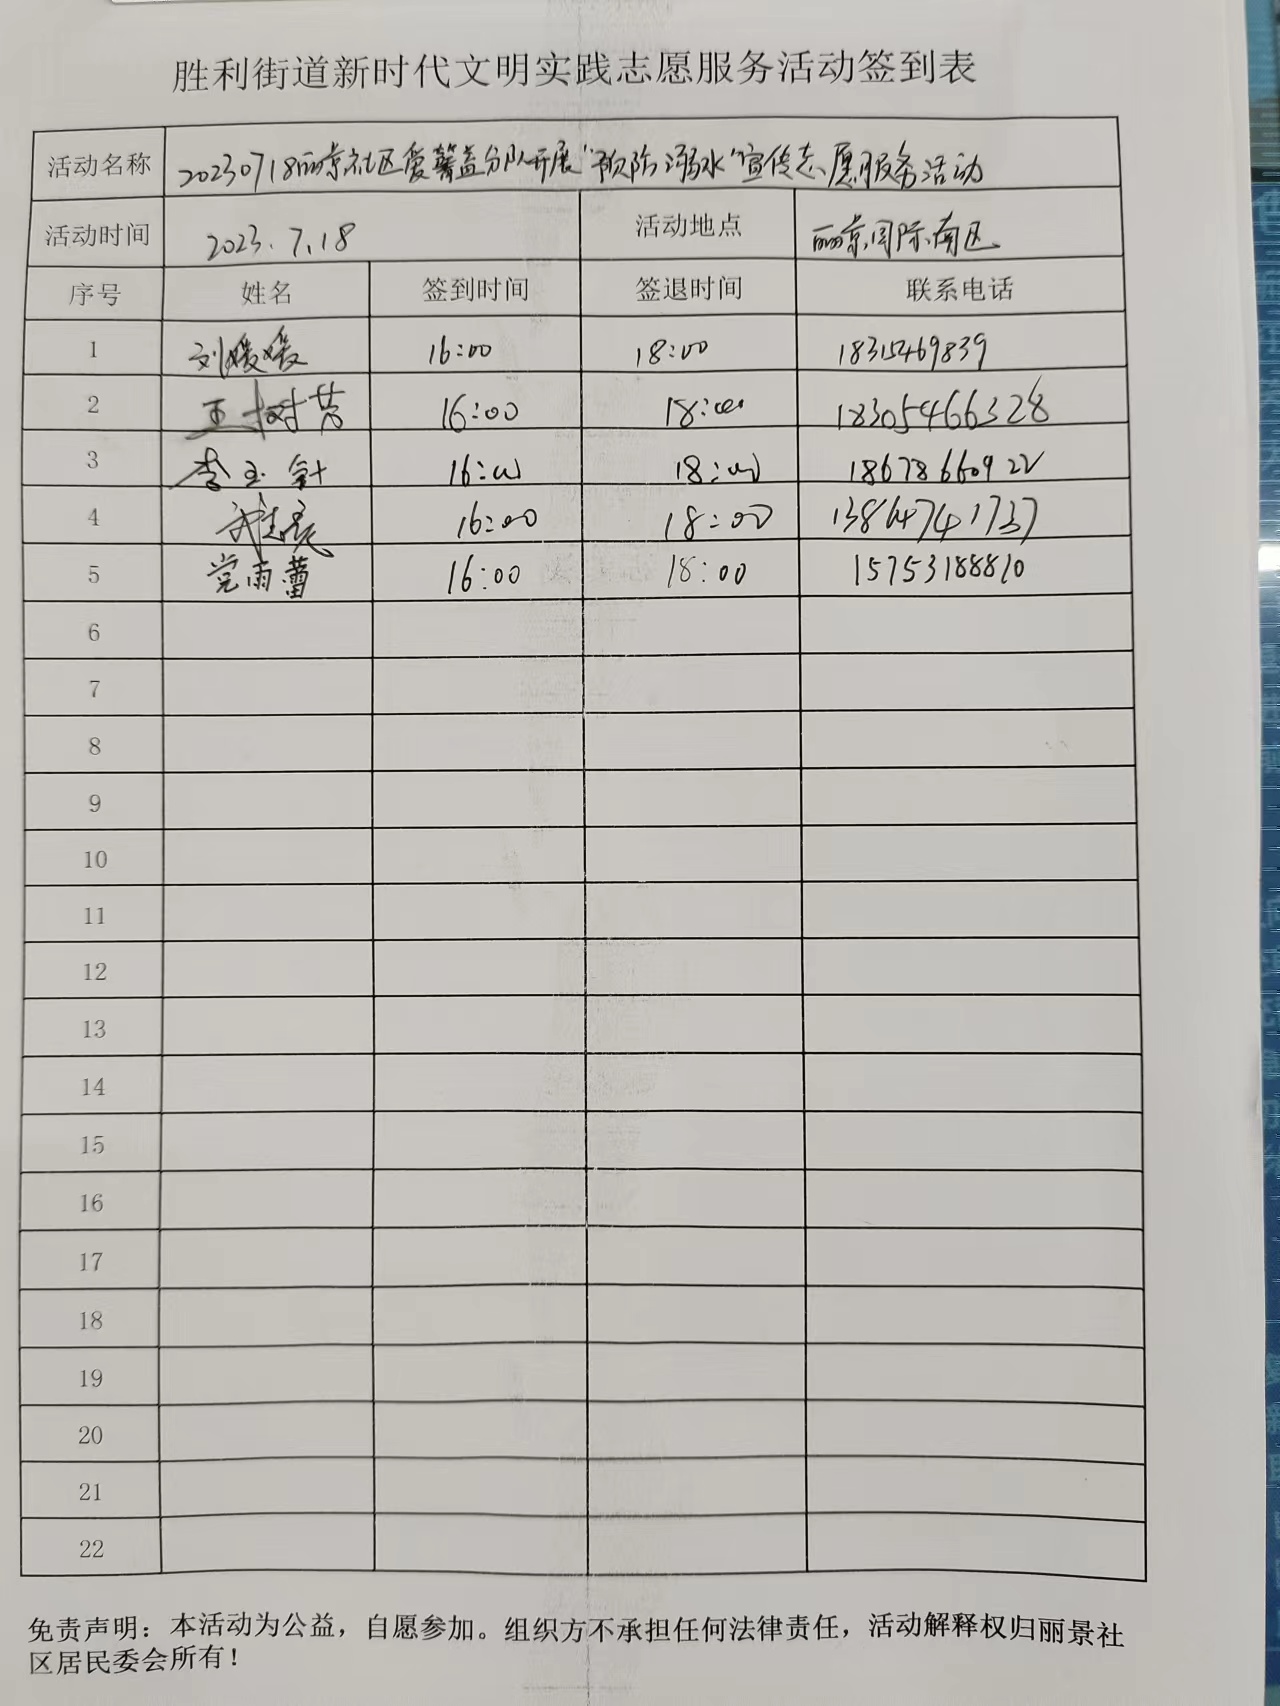 胜利街道新时代文明实践志愿服务活动签到表
活动名称 20230718丽景社区爱馨益分队开展“预防溺水”宣传志愿服务活动
活动时间 2023.7.18 活动地点 丽景国际南区
序号 姓名 签到时间 签退时间 联系电话
1 刘媛媛 16:00 18:00 18315469839
2 王树芳 16:00 18:00 18305466328
3 李玉 16:00 18:00
4 16:00 18:00 13864741737
5 党雨蕾 16:00 18:00 15753188810
6
7
8
9
10
11
12
13
14
15
16
17
18
19
20
21
22
免责声明：本活动为公益，自愿参加。组织方不承担任何法律责任，活动解释权归丽景社
区居民委会所有！